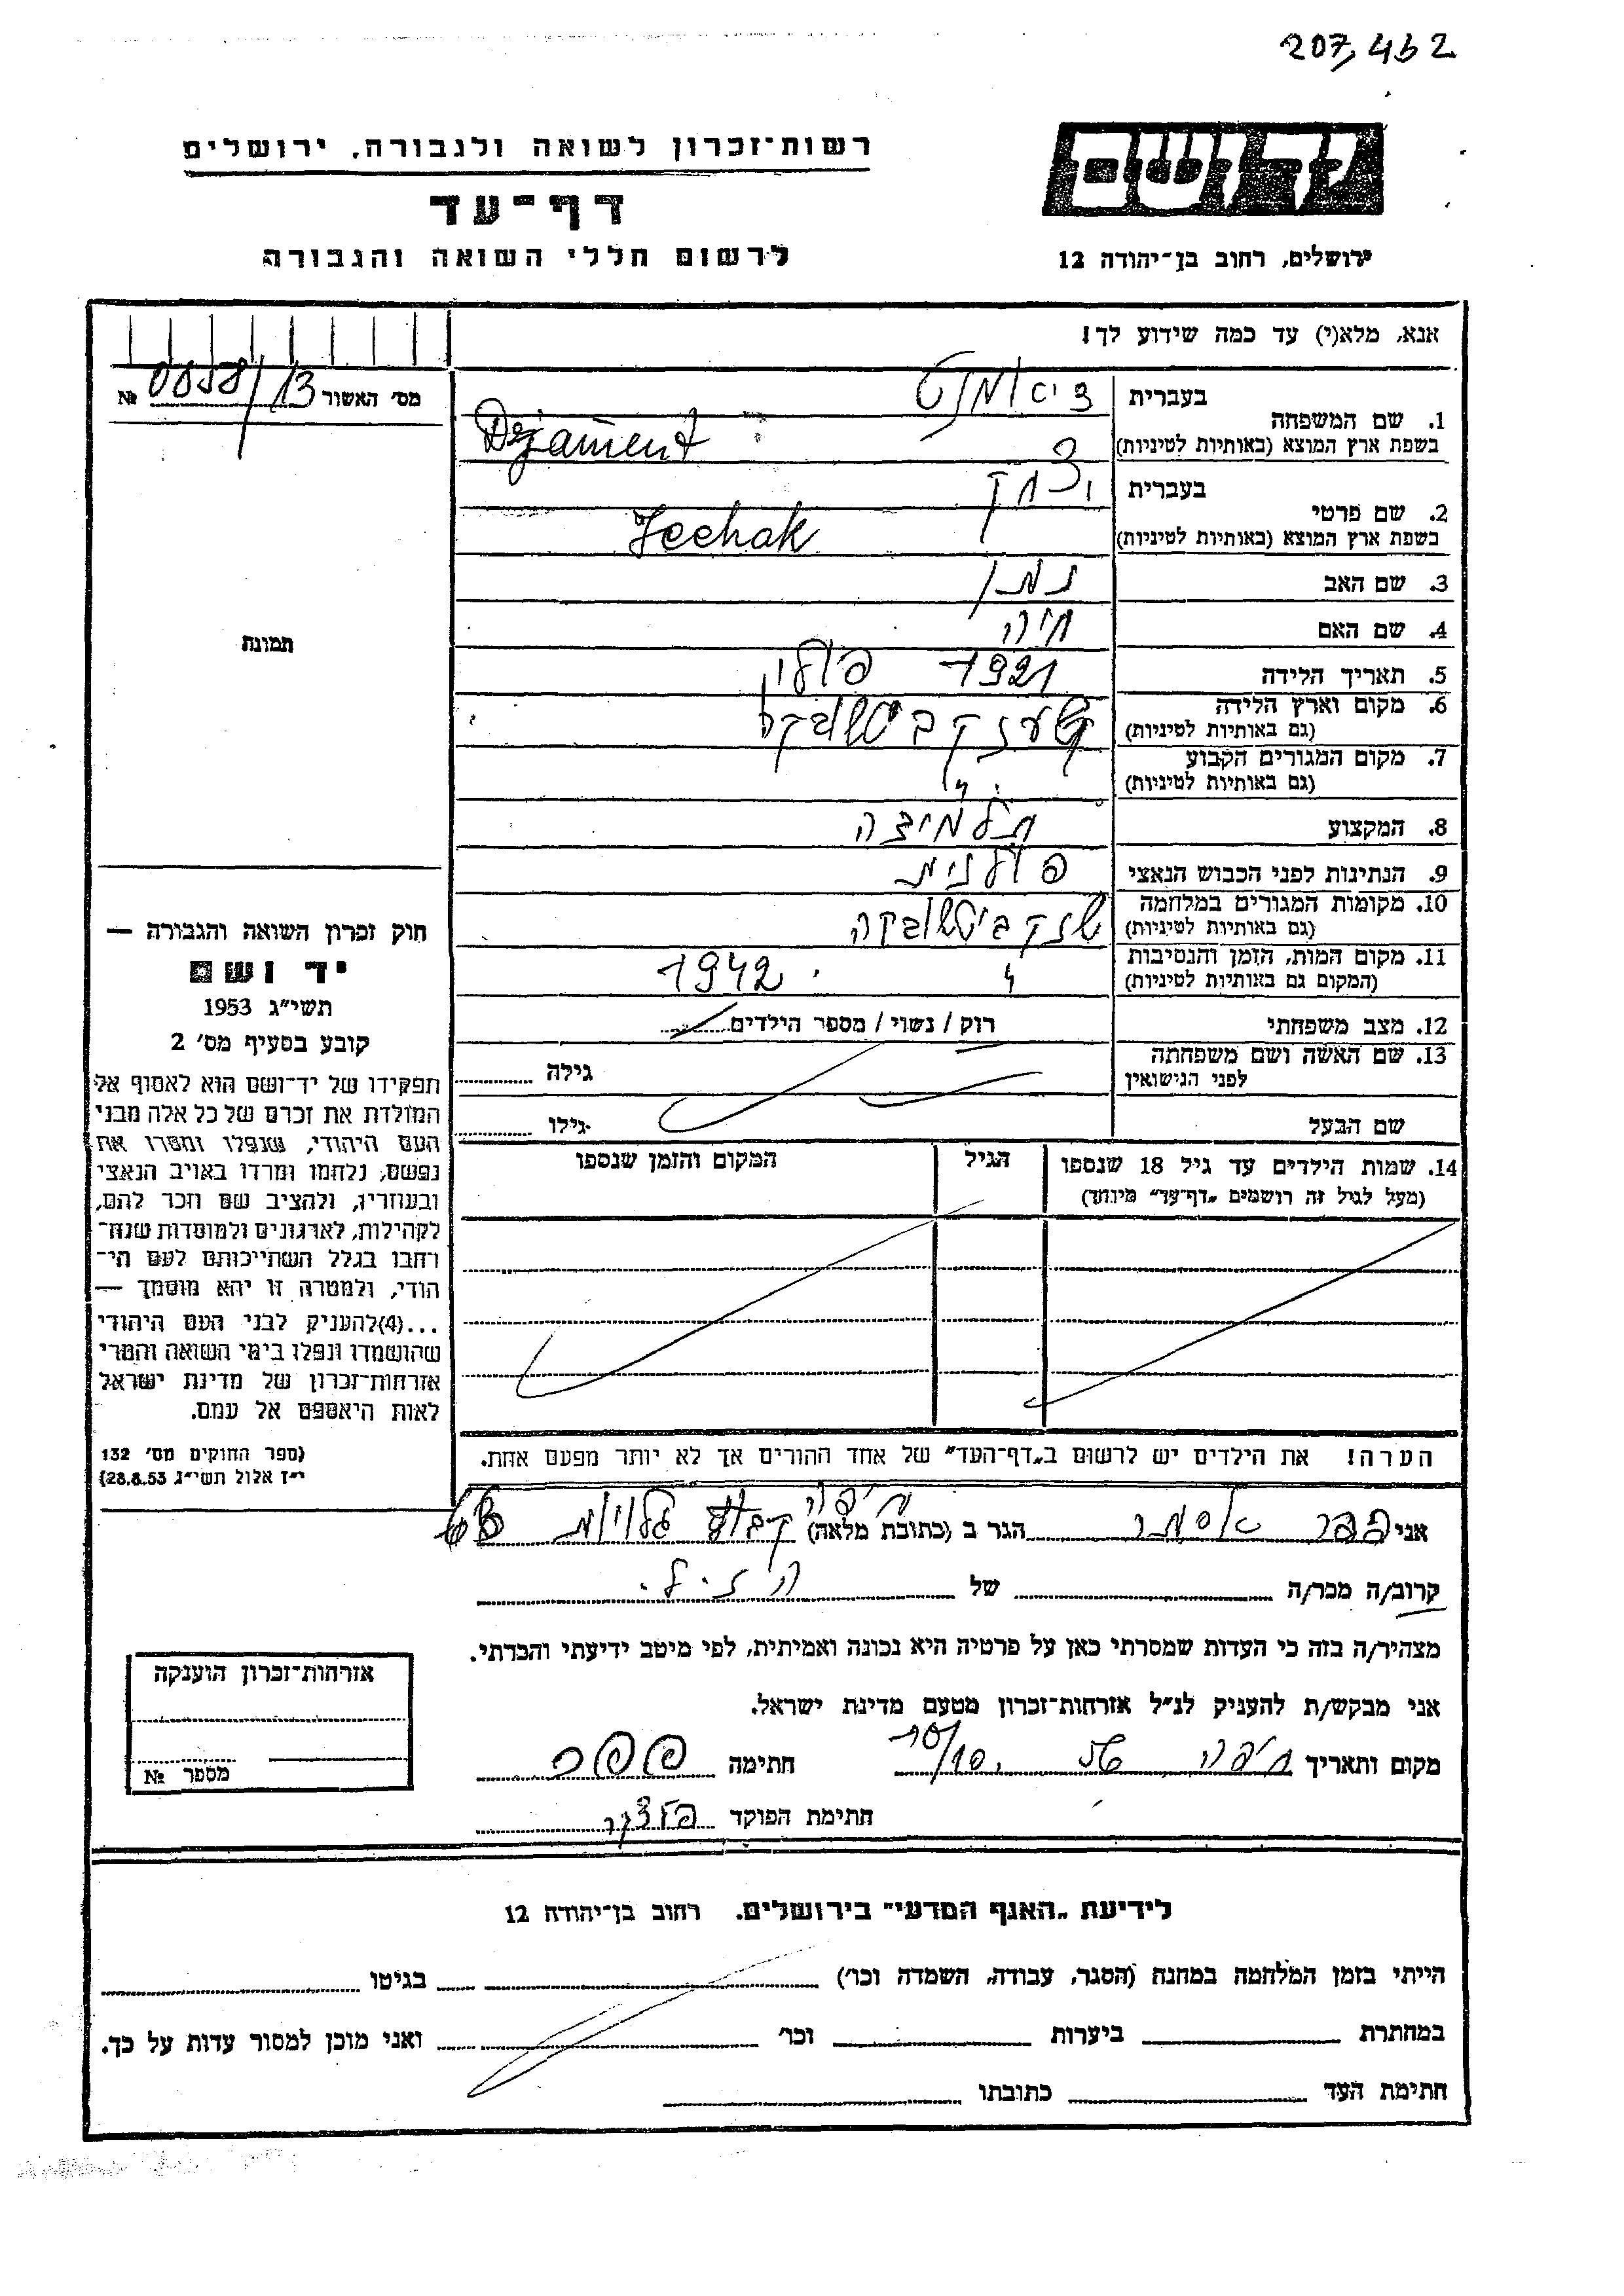 207,462
יד ושם
ירושלים, רחוב בן־יהודה 12
רשות־זכרון לשואה ולגבורה, ירושלים
דף־עד
לרשום חללי השואה והגבורה
אנא, מלא(י) עד כמה שידוע לך!
מס׳ האשור № 0058/13
1. שם המשפחה
בעברית דיאמנט
בשפת ארץ המוצא (באותיות לטיניות) Dejament
2. שם פרטי
בעברית יצחק
בשפת ארץ המוצא (באותיות לטיניות) Jechak
3. שם האב נתן
4. שם האם חיה
5. תאריך הלידה 1921 פולין
6. מקום וארץ הלידה
(גם באותיות לטיניות)
7. מקום המגורים הקבוע
(גם באותיות לטיניות) "
8. המקצוע
9. הנתינות לפני הכבוש הנאצי פולנית
10. מקומות המגורים במלחמה
(גם באותיות לטיניות)
11. מקום המות, הזמן והנסיבות
(המקום גם באותיות לטיניות) " 1942
12. מצב משפחתי רוק / נשוי / מספר הילדים
13. שם האשה ושם משפחתה
לפני הנישואין גילה
שם הבעל גילו
14. שמות הילדים עד גיל 18 שנספו
(מעל לגיל זה רושמים „דף־עד" מיוחד)
הגיל
המקום והזמן שנספו
הערה! את הילדים יש לרשום ב„דף־העד" של אחד ההורים אך לא יותר מפעם אחת.
תמונה
חוק זכרון השואה והגבורה —
יד ושם
תשי"ג 1953
קובע בסעיף מס׳ 2
תפקידו של יד־ושם הוא לאסוף אל
המולדת את זכרם של כל אלה מבני
העם היהודי, שנפלו ומסרו את
נפשם, נלחמו ומרדו באויב הנאצי
ובעוזריו, ולהציב שם וזכר להם,
לקהילות, לארגונים ולמוסדות שנח־
רחבו בגלל השתייכותם לעם הי־
הודי, ולמטרה זו יהא מוסמך —
...(4)להעניק לבני העם היהודי
שהושמדו ונפלו בימי השואה והמרי
אזרחות־זכרון של מדינת ישראל
לאות היאספם אל עמם.
(ספר החוקים מס׳ 132
י"ז אלול תשי"ג 28.8.53)
אני אסתר הגר ב (כתובת מלאה) חיפה קבוץ גלויות
קרוב/ה מכר/ה של הנ.ל.
מצהיר/ה בזה כי העדות שמסרתי כאן על פרטיה היא נכונה ואמיתית, לפי מיטב ידיעתי והכרתי.
אני מבקש/ת להעניק לנ"ל אזרחות־זכרון מטעם מדינת ישראל.
מקום ותאריך חיפה חתימה
חתימת הפוקד
אזרחות־זכרון הוענקה
מספר №
לידיעת „האגף המדעי" בירושלים. רחוב בן־יהודה 12
הייתי בזמן המלחמה במחנה (הסגר, עבודה, השמדה וכו׳) בגיטו
במחתרת ביערות וכו׳ ואני מוכן למסור עדות על כך.
חתימת העד כתובתו